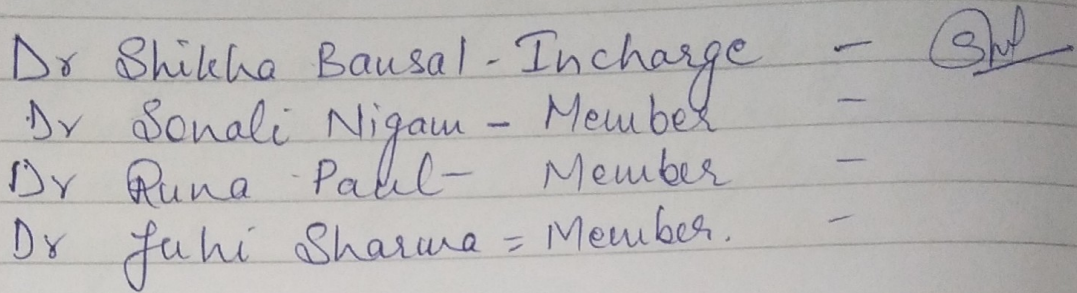 Dr Shikha Bansal - Incharge -
Dr Sonali Nigam - Member -
Dr Runa Paul - Member -
Dr Juhi Sharma = Member. -